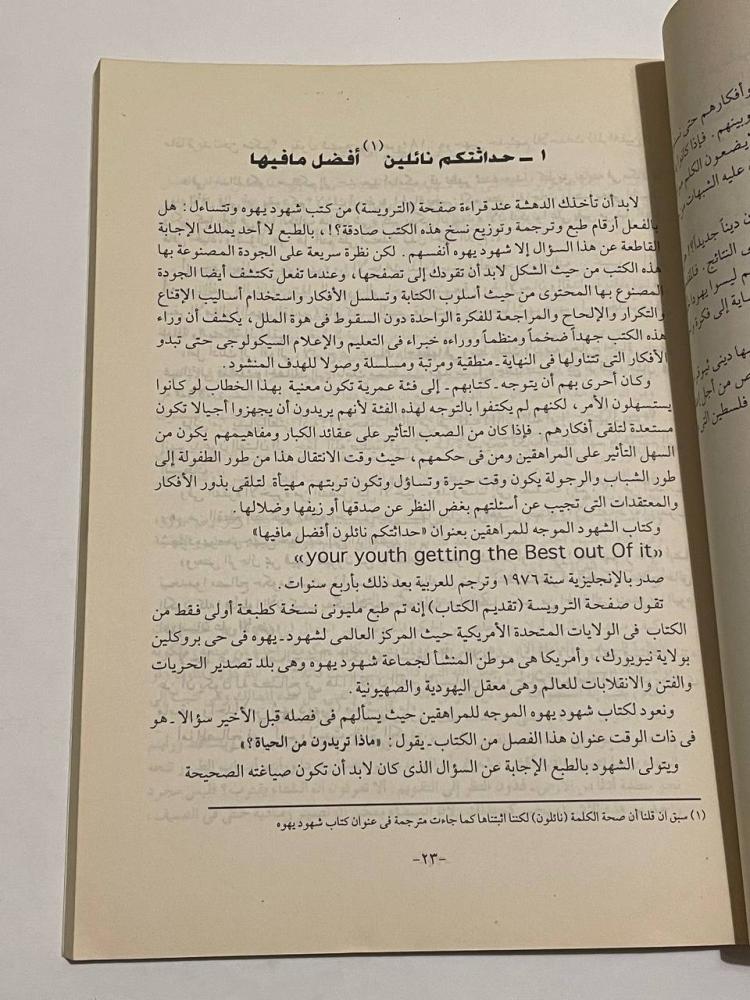 ١ - حداثتكم نائلين (١) أفضل مافيها
لابد أن تأخذك الدهشة عند قراءة صفحة (الترويسة) من كتب شهود يهوه وتتساءل : هل
بالفعل أرقام طبع وترجمة وتوزيع نسخ هذه الكتب صادقة؟! ، بالطبع لا أحد يملك الإجابة
القاطعة عن هذا السؤال إلا شهود يهوه أنفسهم . لكن نظرة سريعة على الجودة المصنوعة بها
هذه الكتب من حيث الشكل لابد أن تقودك إلى تصفحها ، وعندما تفعل تكتشف أيضا الجودة
المصنوع بها المحتوى من حيث أسلوب الكتابة وتسلسل الأفكار واستخدام أساليب الإقناع
والتكرار والإلحاح والمراجعة للفكرة الواحدة دون السقوط فى هوة الملل ، يكشف أن وراء
هذه الكتب جهداً ضخماً ومنظماً ووراءه خبراء فى التعليم والإعلام السيكولوجى حتى تبدو
الأفكار التى تتناولها فى النهاية - منطقية ومرتبة ومسلسلة وصولا للهدف المنشود .
وكان أحرى بهم أن يتوجه - كتابهم - إلى فئة عمرية تكون معنية بهذا الخطاب لو كانوا
يستسهلون الأمر ، لكنهم لم يكتفوا بالتوجه لهذه الفئة لأنهم يريدون أن يجهزوا أجيالا تكون
مستعدة لتلقى أفكارهم . فإذا كان من الصعب التأثير على عقائد الكبار ومفاهيمهم يكون من
السهل التأثير على المراهقين ومن فى حكمهم ، حيث وقت الانتقال هذا من طور الطفولة إلى
طور الشباب والرجولة يكون وقت حيرة وتساؤل وتكون تربتهم مهيأة لتلقى بذور الأفكار
والمعتقدات التى تجيب عن أسئلتهم بغض النظر عن صدقها أو زيفها وضلالها .
وكتاب الشهود الموجه للمراهقين بعنوان «حداثتكم نائلون أفضل مافيها»
«your youth getting the Best out Of it»
صدر بالإنجليزية سنة ١٩٧٦ وترجم للعربية بعد ذلك بأربع سنوات .
تقول صفحة الترويسة (تقديم الكتاب) إنه تم طبع مليونى نسخة كطبعة أولى فقط من
الكتاب فى الولايات المتحدة الأمريكية حيث المركز العالمى لشهود - يهوه فى حى بروكلين
بولاية نيويورك ، وأمريكا هى موطن المنشأ لجماعة شهود يهوه وهى بلد تصدير الحريات
والفتن والانقلابات للعالم وهى معقل اليهودية والصهيونية .
ونعود لكتاب شهود يهوه الموجه للمراهقين حيث يسألهم فى فصله قبل الأخير سؤالا - هو
فى ذات الوقت عنوان هذا الفصل من الكتاب - يقول : «ماذا تريدون من الحياة؟»
ويتولى الشهود بالطبع الإجابة عن السؤال الذى كان لابد أن تكون صياغته الصحيحة
(١) سبق ان قلنا أن صحة الكلمة (نائلون) لكننا اثبتناها كما جاءت مترجمة فى عنوان كتاب شهود يهوه
-٢٣-